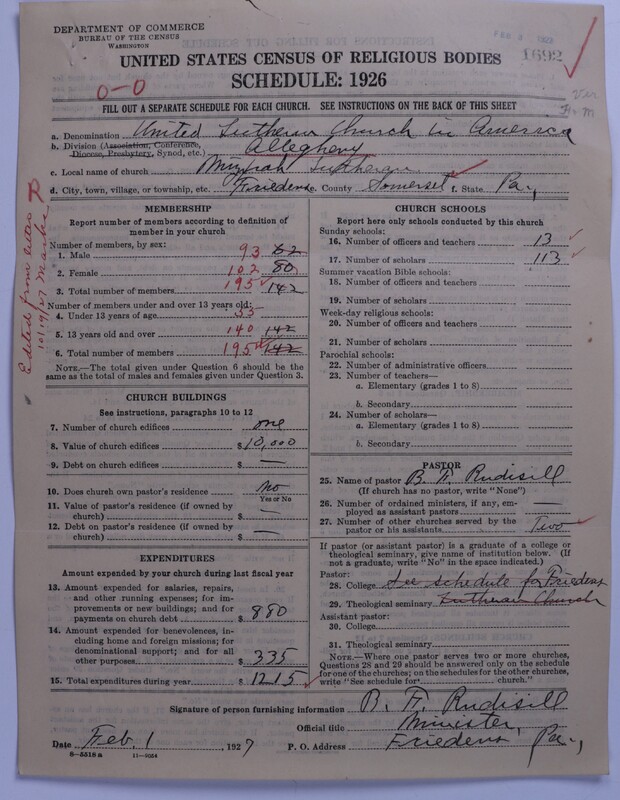 DEPARTMENT OF COMMERCE
BUREAU OF THE CENSUS
WASHINGTON
1692
UNITED STATES CENSUS OF RELIGIOUS BODIES
SCHEDULE: 1926
0-0
FILL OUT A SEPARATE SCHEDULE FOR EACH CHURCH. SEE INSTRUCTIONS ON THE BACK OF THIS SHEET
a. Denomination United Lutheran Church in America
b. Division (Association, Conference, Diocese, Presbytery, Synod, etc.) Allegheny
c. Local name of church Mizpah Lutheran
d. City, town, village, or township, etc. Friedens e. County Somerset f. State Pa.,
Edited from letter 10/19/27 Marks
MEMBERSHIP
Report number of members according to definition of member in your church
Number of members, by sex:
1. Male 93 62
2. Female 102 80
3. Total number of members 195 142
Number of members under and over 13 years old:
4. Under 13 years of age 55
5. 13 years old and over 140 142
6. Total number of members 195 142
NOTE.—The total given under Question 6 should be the same as the total of males and females given under Question 3.
CHURCH BUILDINGS
See instructions, paragraphs 10 to 12
7. Number of church edifices one
8. Value of church edifices $ 10,000
9. Debt on church edifices $ —
10. Does church own pastor's residence No
Yes or No
11. Value of pastor's residence (if owned by church) $ —
12. Debt on pastor's residence (if owned by church) $ —
EXPENDITURES
Amount expended by your church during last fiscal year
13. Amount expended for salaries, repairs, and other running expenses; for improvements or new buildings; and for payments on church debt $ 880
14. Amount expended for benevolences, including home and foreign missions; for denominational support; and for all other purposes 335
15. Total expenditures during year $ 1215
CHURCH SCHOOLS
Report here only schools conducted by this church
Sunday schools:
16. Number of officers and teachers 13
17. Number of scholars 113
Summer vacation Bible schools:
18. Number of officers and teachers
19. Number of scholars
Week-day religious schools:
20. Number of officers and teachers
21. Number of scholars
Parochial schools:
22. Number of administrative officers
23. Number of teachers—
a. Elementary (grades 1 to 8)
b. Secondary
24. Number of scholars—
a. Elementary (grades 1 to 8)
b. Secondary
PASTOR
25. Name of pastor B. F. Rudisill
(If church has no pastor, write "None")
26. Number of ordained ministers, if any, employed as assistant pastors —
27. Number of other churches served by the pastor or his assistants Two
If pastor (or assistant pastor) is a graduate of a college or theological seminary, give name of institution below. (If not a graduate, write "No" in the space indicated.)
Pastor:
28. College See schedule for Friedens
29. Theological seminary Lutheran Church
Assistant pastor:
30. College
31. Theological seminary
NOTE.—Where one pastor serves two or more churches, Questions 28 and 29 should be answered only on the schedule for one of the churches; on the schedules for the other churches, write "See schedule for church."
Signature of person furnishing information B. F. Rudisill
Official title Minister,
Date Feb. 1 1927 P. O. Address Friedens Pa.,
8—5518 a 11—9054